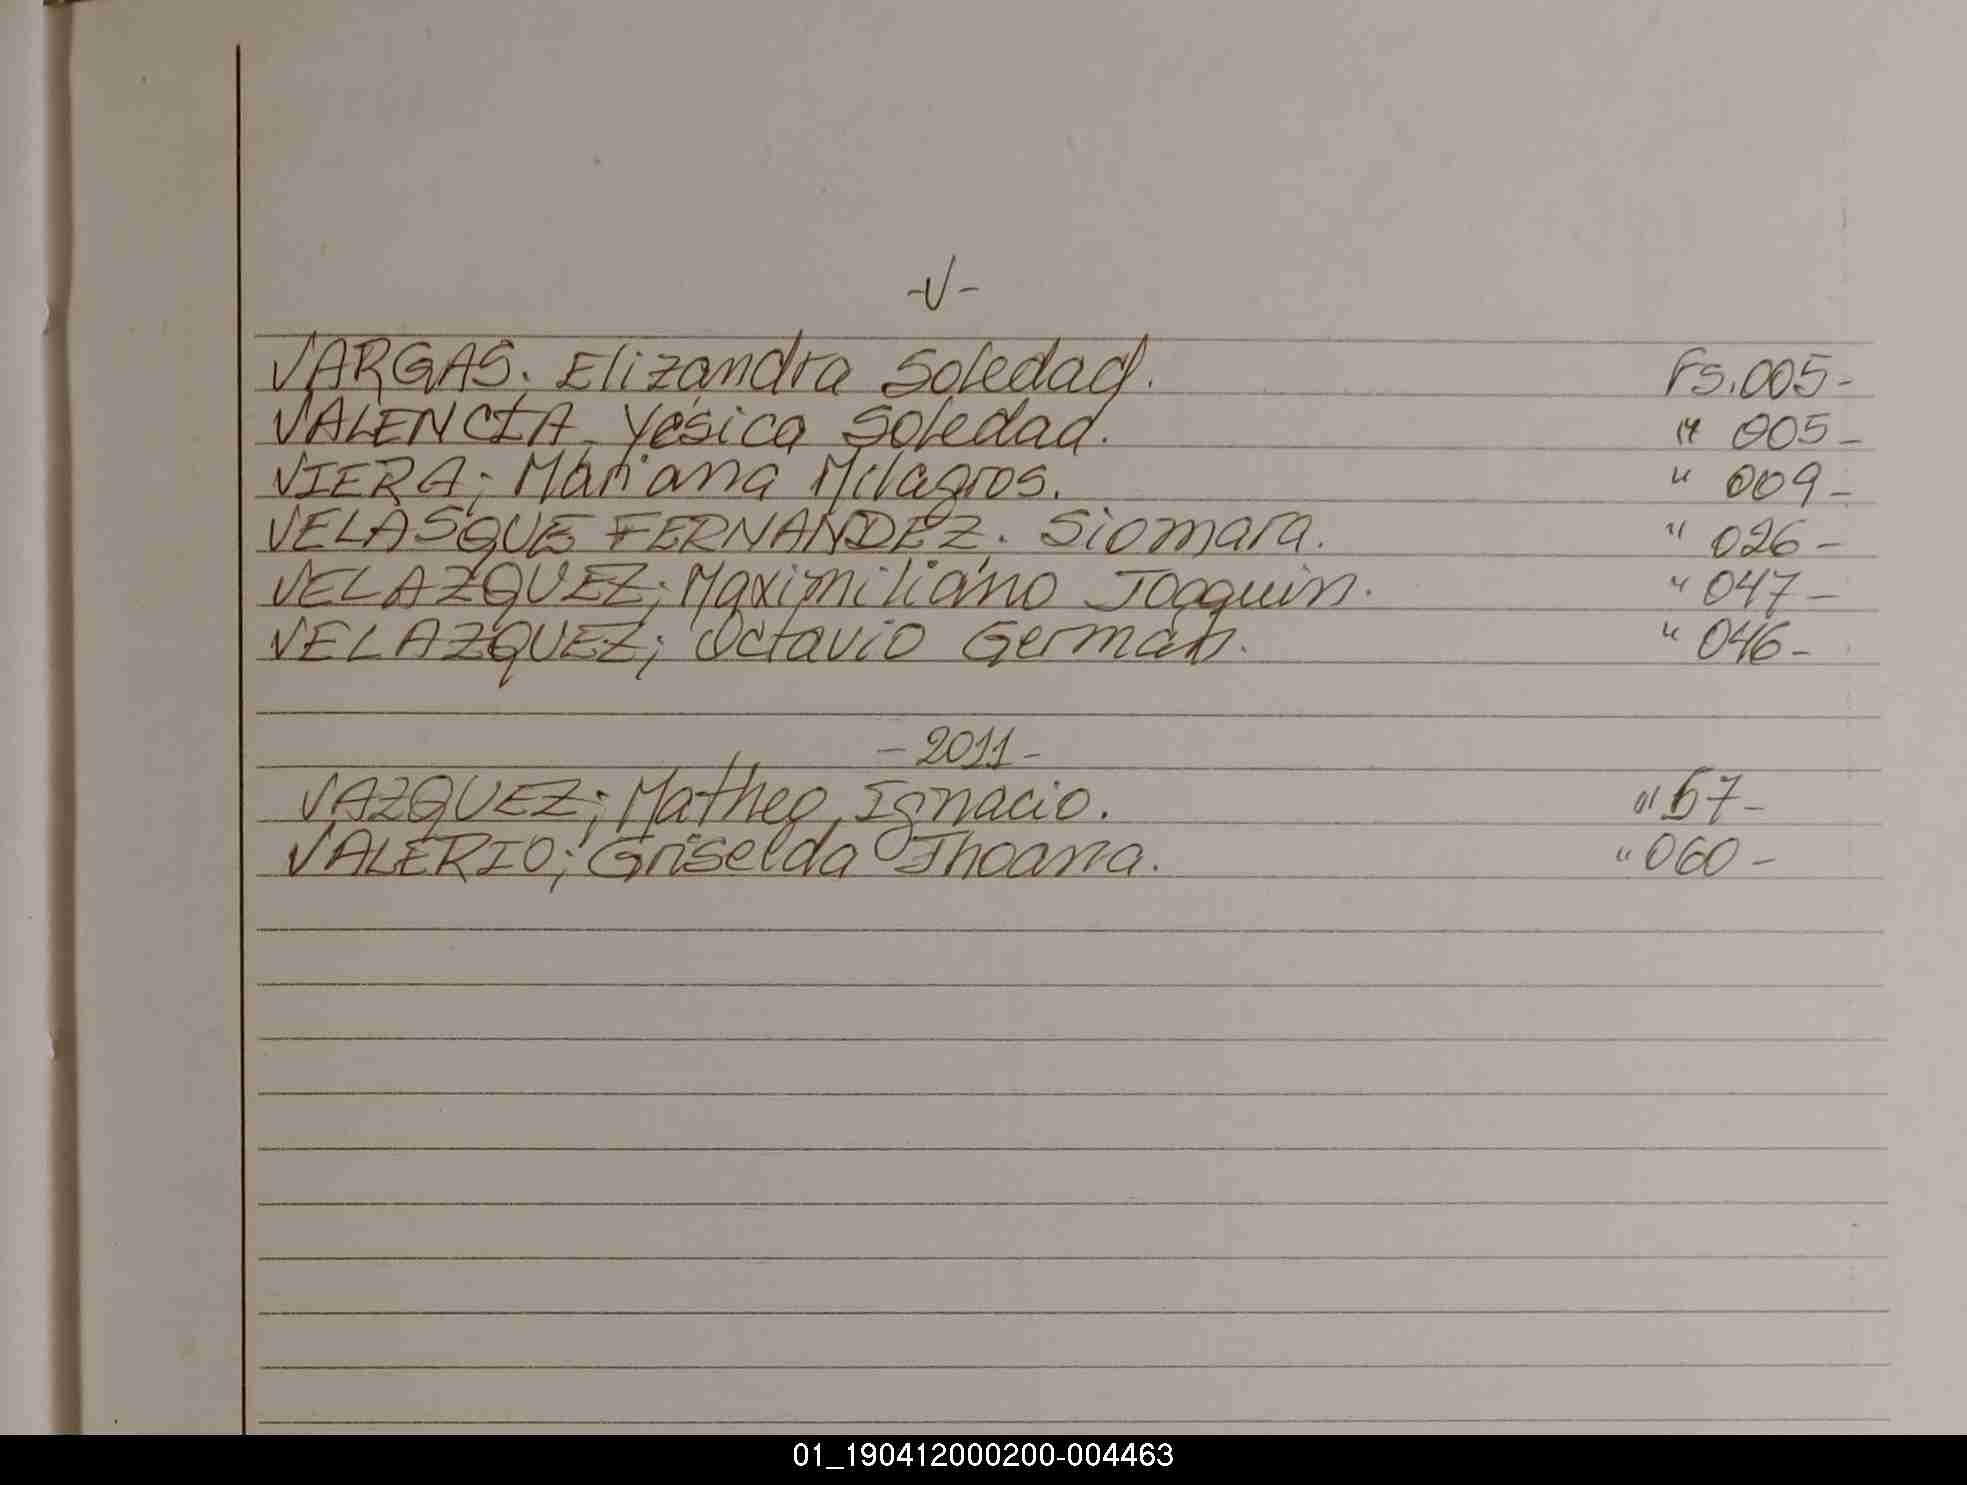 -V-
VARGAS. Elizandra Soledad. Fs. 005-
VALENCIA. Yésica Soledad. " 005-
VIERA; Mariana Milagros. " 009-
VELASQUE FERNANDEZ. Siomara. " 026-
VELAZQUEZ; Maximiliano Joaquin. " 047-
VELAZQUEZ; Octavio German. " 046-
- 2011 -
VAZQUEZ; Matheo Ignacio. " 57-
VALERIO; Griselda Jhoana. " 060-
01_190412000200-004463